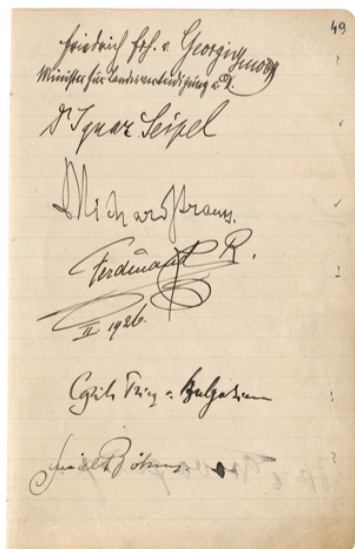 49
Friedrich Frh. v. Georgi
Minister für Landesverteidigung a. D.
Dr Ignaz Seipel
Richard Strauss.
Ferdinand R.
II 1926.
Cyrill Prinz v. Bulgarien